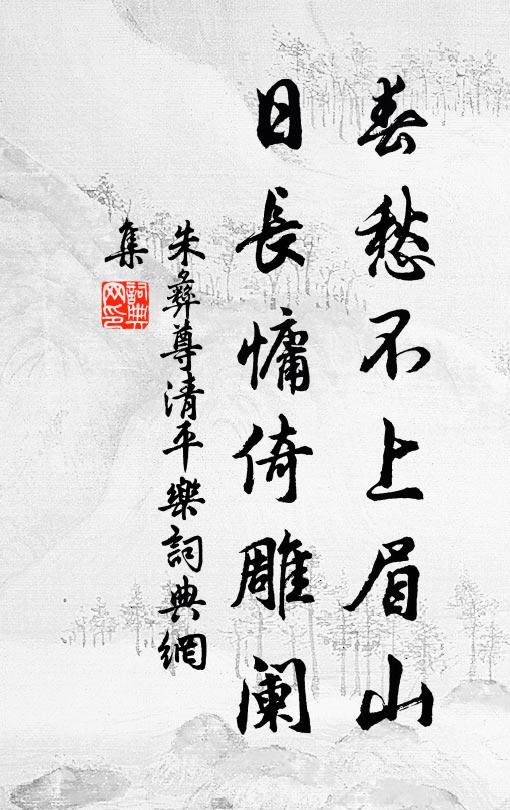 春愁不上眉山
日長慵倚雕闌
朱彝尊清平樂詞典網
集
詞典
网印